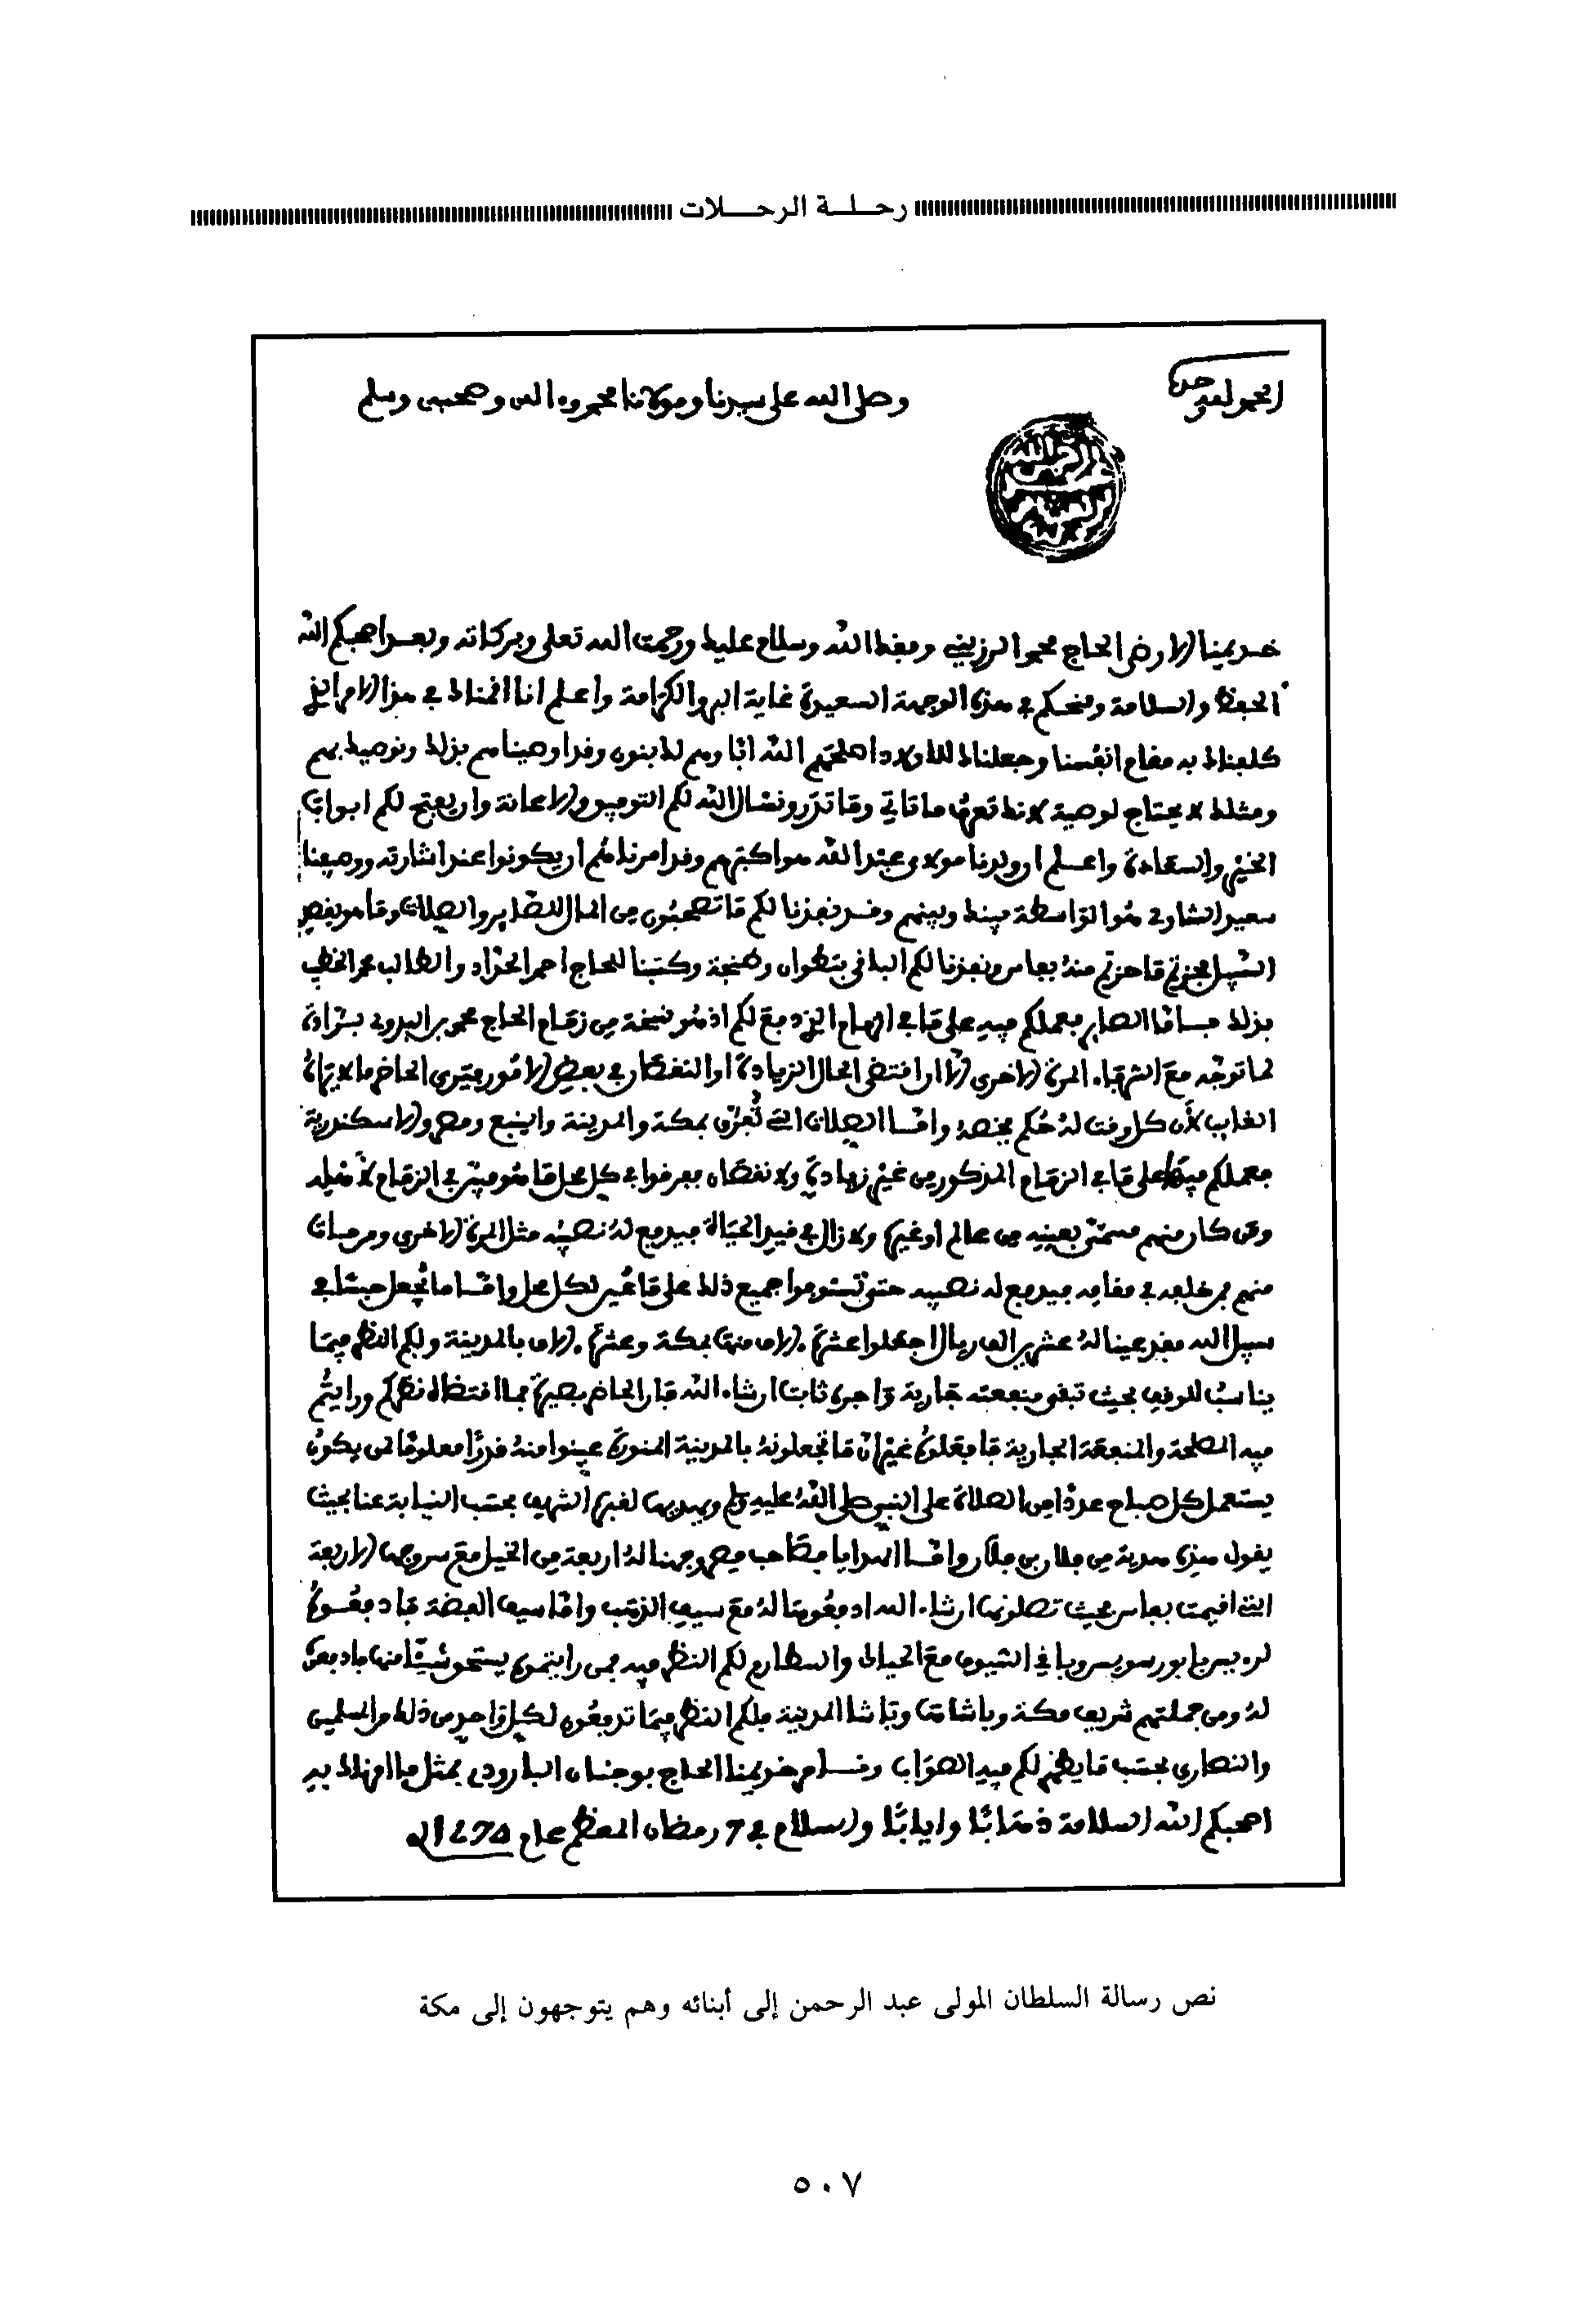 رحلة الرحلات
الحمد لله وحده
وصلى الله على سيدنا ومولانا محمد وءاله وصحبه وسلم
خديمنا الارضى الحاج محمد الرزيني وفقك الله وسلام عليك ورحمت الله تعلى وبركاته وبعد اصحبكم الله
الحفظ والسلامة ومنحكم في هذه الوجهة السعيدة غاية البر والكرامة واعلم انا اقمناك في هذا الامر الذي
كلفناك به مقام انفسنا وجعلناك للاولاد اصلحهم الله ابا وهم لك بنون وقد اوصيناهم بذلك ونوصيك بهم
ومثلك لا يحتاج لوصية لانك تعرف ما تاتي وما تذر ونسال الله لكم التوفيق والاعانة وان يفتح لكم ابواب
الخير والسعادة واعلم ان ولدنا مولاى عبد الله هو اكبرهم وقد امرناهم ان يكونوا عند اشارته ووصيفنا
سعيد الشاوي هو الواسطة بينك وبينهم وقد نفذنا لكم ما تصحبون من المال للضاير والصلات وما هو بقصد
السبيل فحزتم ما حزتم منه بفاس ونفذنا لكم الباقي بتطوان وطنجة وكتبنا للحاج احمد الحداد والطالب محمد الخطيب
بذلك فاما الصاير فعملكم فيه على ما في الزمام الذي دفع لكم اذ هو نسخة من زمام الحاج محمد البدوي بزادة
لما توجه مع الشرفاء المرة الاخرى الا ان اقتضى الحال الزيادة او النقصان في بعض الامور فيرى الحاضر ما لا يراه
الغايب لأن كل وقت له حكم يخصه واما الصلات التي تفرق بمكة والمدينة والينبع ومصر والاسكندرية
فعملكم فيها على ما في الزمام المذكور من غير زيادة ولا نقصان ففرقوا في كل محل ما هو مبين في الزمام
ومن كان منهم مسمى بعينه من عالم او غيره ولا زال في قيد الحياة فيدفع له نصيبه مثل المرة الاخرى ومن مات
منهم فمن خلفه في مقامه فيدفع له نصيبه حتى تستوفوا جميع ذلك على ما عين لكل محل واما ما يجعل حبسا في
سبيل الله فقد عينا له عشرين الف ريال اجعلوا عشرة ءالاف منها بمكة وعشرة ءالاف بالمدينة ولكم النظر فيما
يناسب للوقف بحيث تبقى منفعته جارية واجره ثابت ان شاء الله فان الحاضر بصيرة فما اقتضاه نظركم ورايتم
فيه المصلحة والمنفعة الجارية فافعلوه غير ان ما تجعلونه بالمدينة المنورة عينوا منه قدرا معلوما لمن يكون
يستعمل كل صباح عددا من الصلاة على النبي صلى الله عليه وسلم ويهديها لقبره الشريف بحسب النيابة عنا بحيث
يقول هذه هدية من فلان بن فلان واما الهدايا فصاحب مصر وجهنا له اربعة من الخيل مع سروجها الاربعة
التي اقيمت بفاس بحيث تصلونها ان شاء الله ادفعوها له مع سيف الذهب واما سيف الفضة فادفعوه
وباقي السيوف مع الحياك والسطارم لكم النظر فيه فمن رايتموه يستحق شيئا منها فادفعوه
له ومن جملتهم شريف مكة وباشاتها وباشا المدينة فلكم النظر فيما تدفعون لكل واحد من ذلك من المسلمين
والنصارى بحسب ما يظهر لكم فيه الصواب وقد امر خديمنا الحاج بوجنان البارودي بمثل ما امرناك به
اصحبكم الله السلامة ذهابا وايابا والسلام في 7 رمضان المعظم عام
نص رسالة السلطان المولى عبد الرحمن إلى أبنائه وهم يتوجهون إلى مكة
٥٠٧